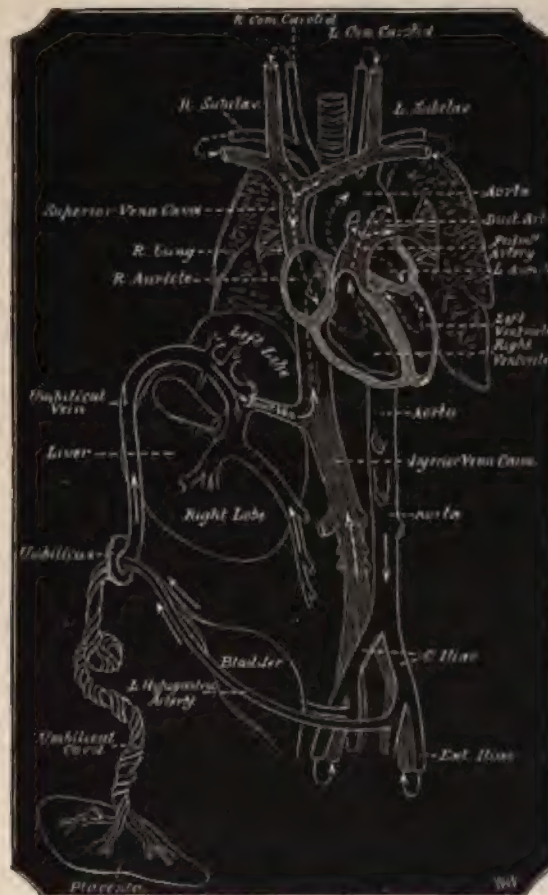 R. Com. Carotid
L. Com. Carotid
R. Subclav.
L. Subclav.
Superior Vena Cava
Aorta
Duct. Art.
R. Lung
Pulm.
Artery
R. Auricle
L. Auric.
Left Lobe
Left
Ventricle
Right
Ventricle
Umbilical
Vein
Aorta
Liver
Inferior Vena Cava
Right Lobe
Aorta
Umbilicus
Bladder
C. Iliac
L. Hypogastric
Artery
Umbilical
Cord
Ext. Iliac
Placenta